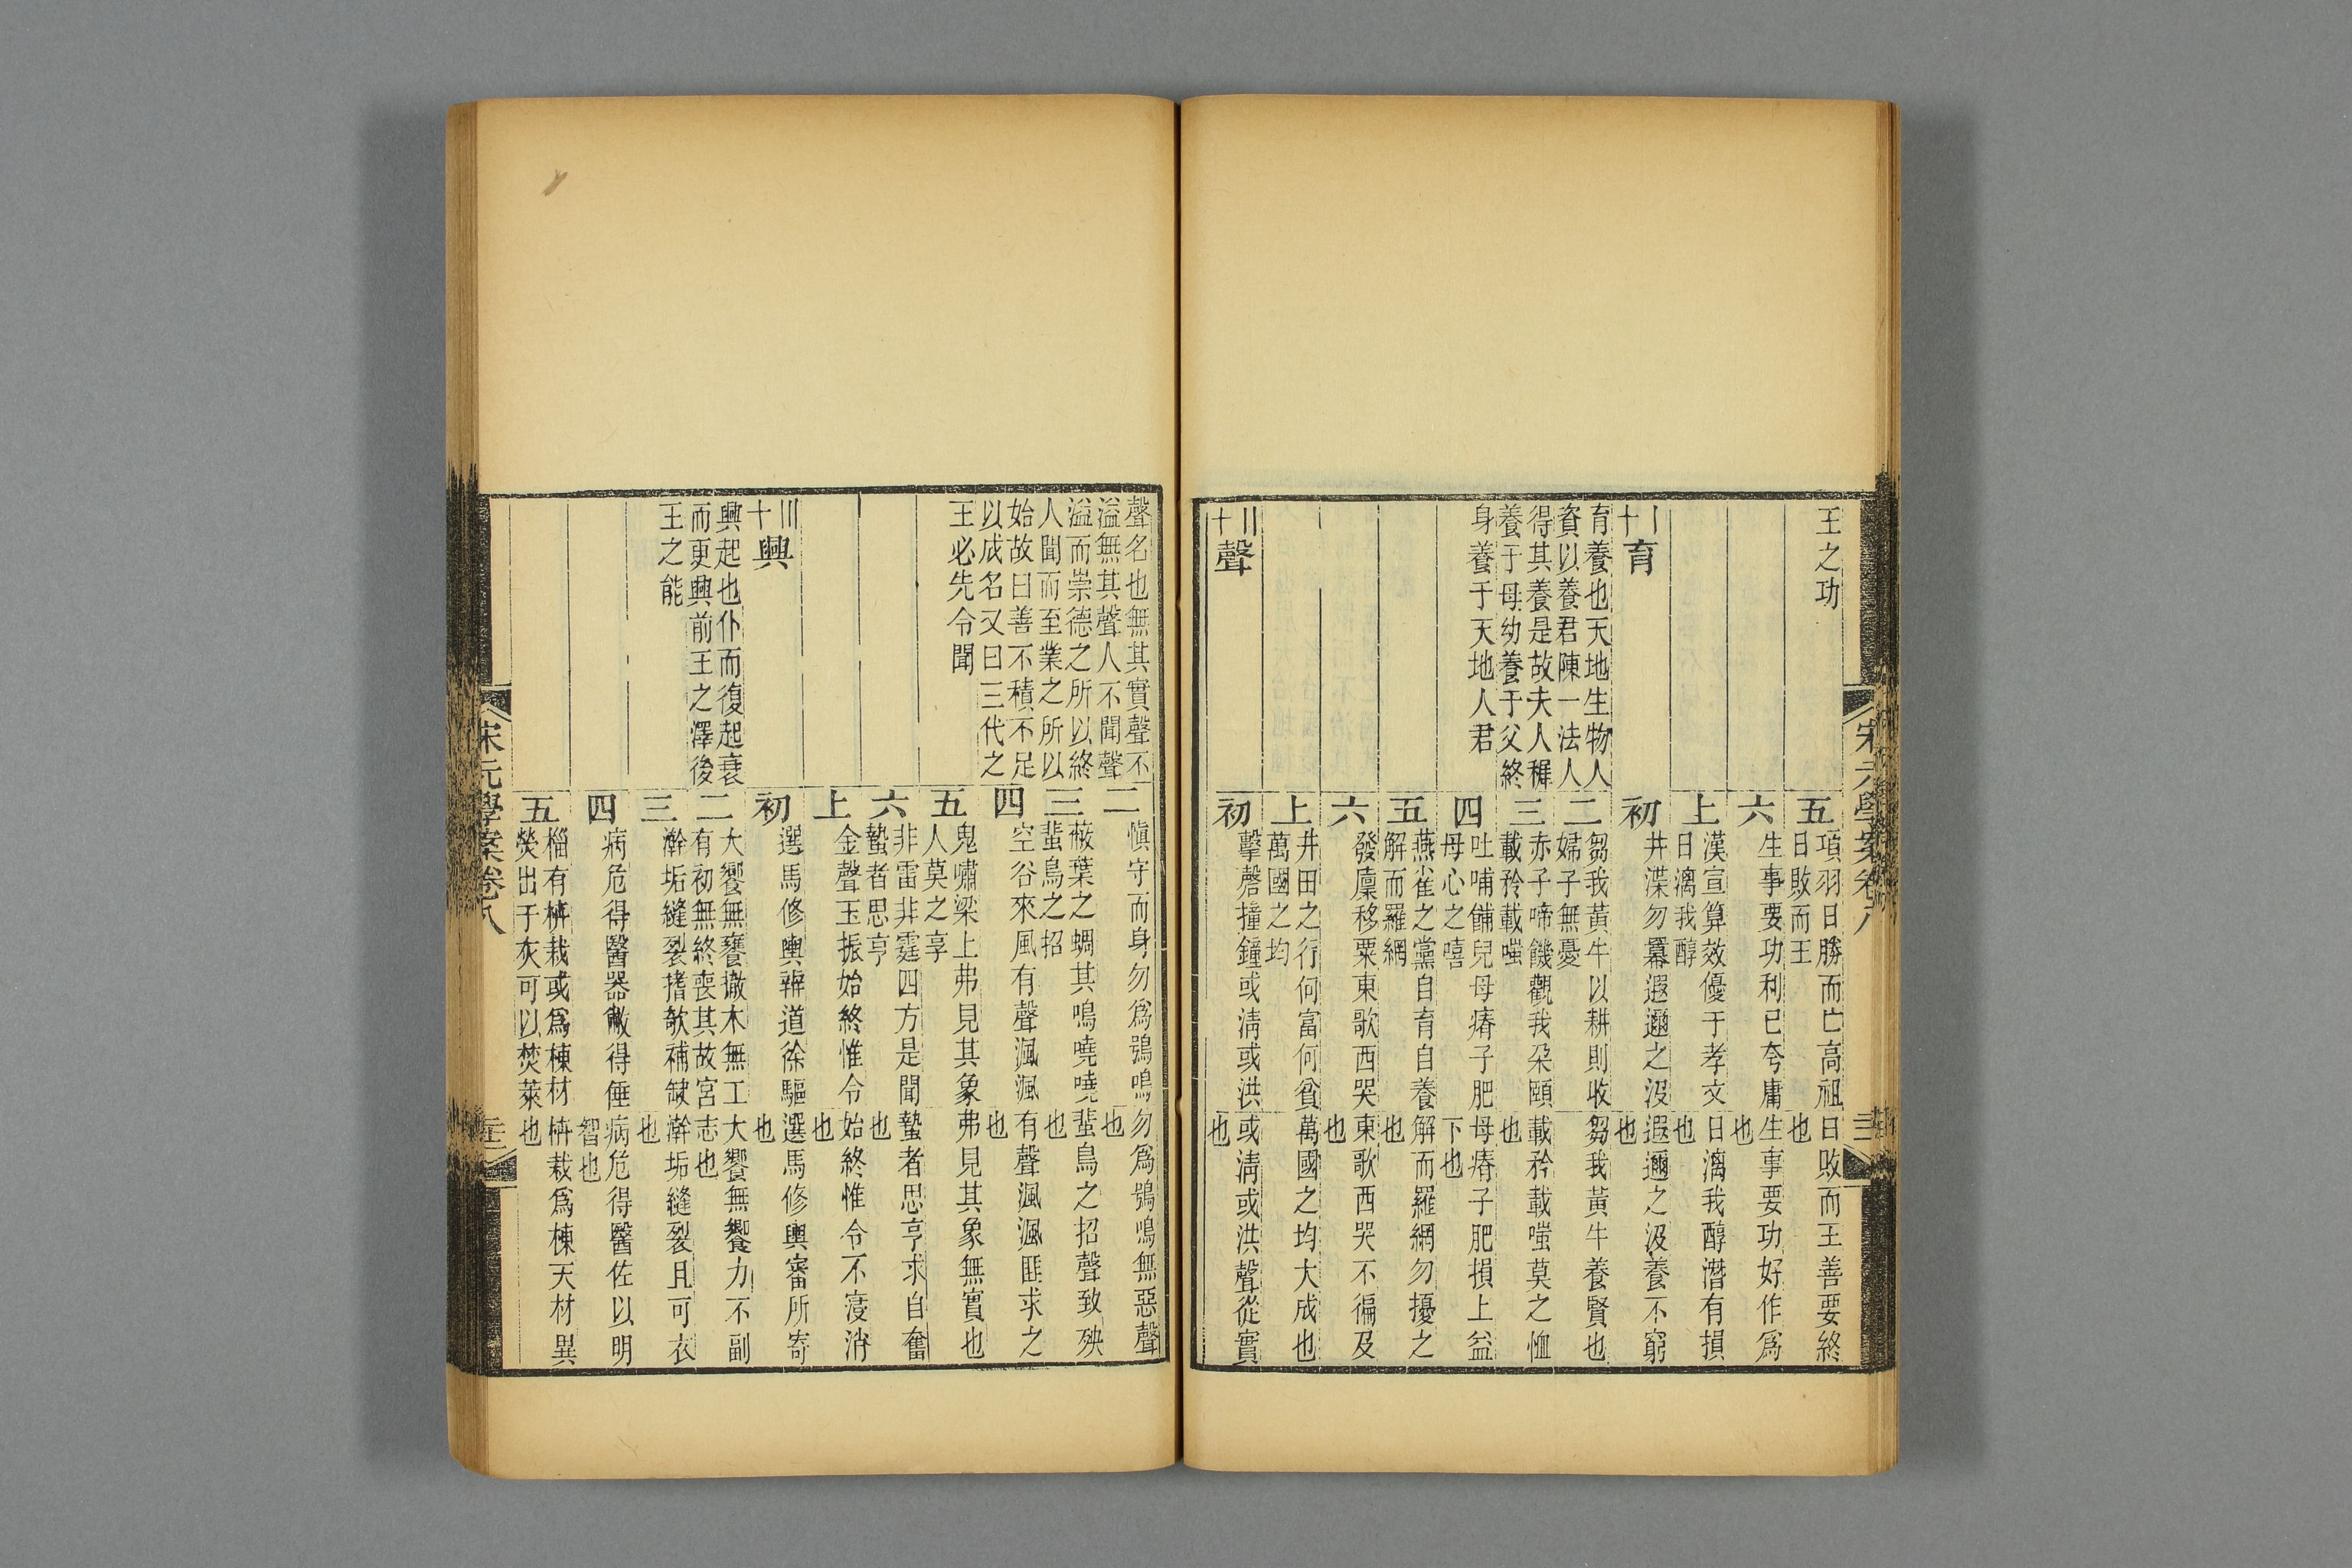 王之功
五
項羽日勝而亡高祖
日敗而王
日敗而王善要終
也
六
生事要功利已夸庸
生事要功好作爲
也
上
漢宣算效優于孝文
日漓我醇
日漓我醇潛有損
也
十〡育
初
井渫勿羃遐邇之汲
遐邇之汲養不窮
也
育養也天地生物人
資以養君陳一法人
二
芻我黃牛以耕則收
婦子無憂
芻我黃牛養賢也
得其養是故夫人穉
養于母幼養于父終
三
赤子啼饑觀我朶頤
載矜載嗤
載矜載嗤莫之恤
也
身養于天地人君
四
吐哺餔兒母瘠子肥
母心之嘻
母瘠子肥損上益
下也
五
燕雀之黨自育自養
解而羅網
解而羅網勿擾之
也
六
發廩移粟東歌西哭
東歌西哭不徧及
也
上
井田之行何富何貧
萬國之均
萬國之均大成也
十〢聲
初
擊磬撞鐘或淸或洪
或淸或洪聲從實
也
聲名也無其實聲不
溢無其聲人不聞聲
二
愼守而身勿爲鴞鳴
勿爲鴞鳴無惡聲
也
溢而崇德之所以終
人聞而至業之所以
三
蔽葉之蜩其鳴嘵嘵
蜚鳥之招
蜚鳥之招聲致殃
也
始故曰善不積不足
以成名又曰三代之
四
空谷來風有聲渢渢
有聲渢渢匪求之
也
王必先令聞
五
鬼嘯梁上弗見其象
人莫之享
弗見其象無實也
六
非雷非霆四方是聞
蟄者思亨
蟄者思亨求自奮
也
上
金聲玉振始終惟令
始終惟令不寖消
也
十〣興
初
選馬修輿辨道徐驅
選馬修輿審所寄
也
興起也仆而復起衰
而更興前王之澤後
二
大饗無饔撤木無工
有初無終喪其故宮
大饗無饔力不副
志也
王之能
三
澣垢縫裂揩欹補缺
澣垢縫裂且可衣
也
四
病危得醫器敝得倕
病危得醫佐以明
智也
五
椔有枿栽或爲棟材
熒出于灰可以焚萊
枿栽爲棟天材異
也
宋元學案卷八